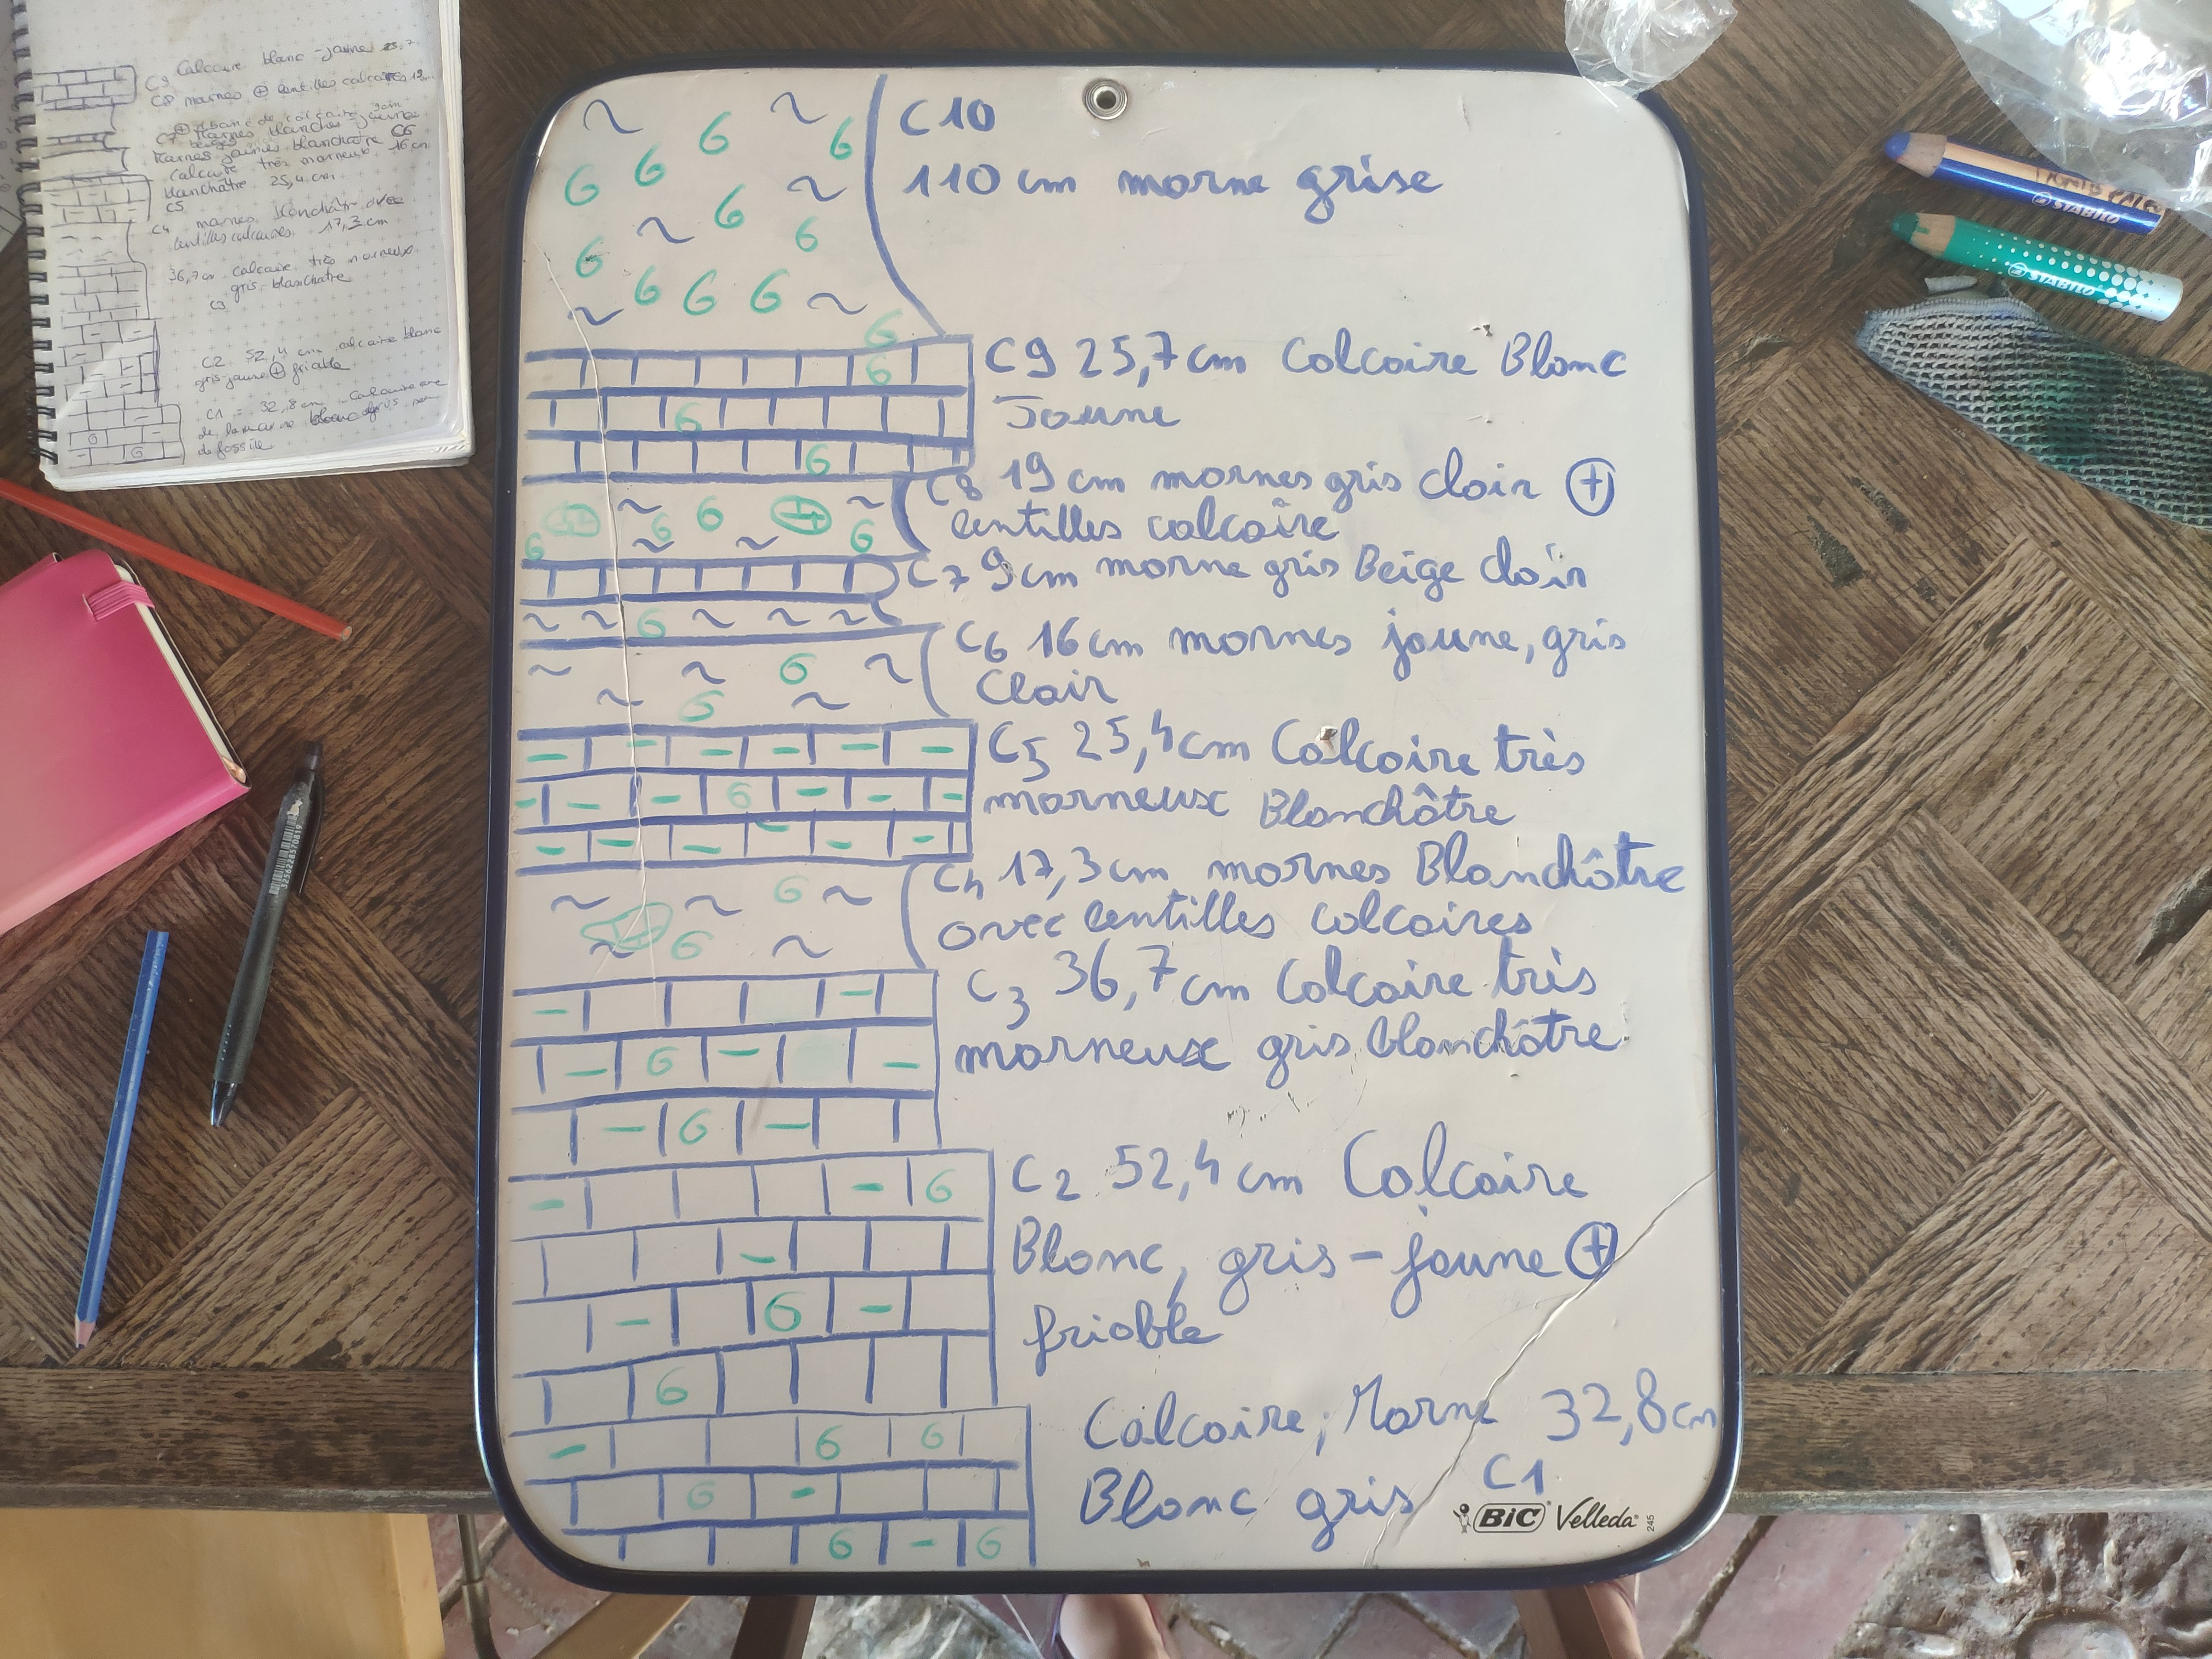 C10
110 cm marne grise
C9 25,7 cm Calcaire Blanc
Jaune
C8 19 cm marnes gris clair ⊕
lentilles calcaire
C7 9 cm marne gris Beige clair
C6 16 cm marnes jaune, gris
clair
C5 25,4 cm Calcaire très
marneux Blanchâtre
C4 17,3 cm marnes Blanchâtre
avec lentilles calcaires
C3 36,7 cm Calcaire très
marneux gris blanchâtre
C2 52,4 cm Calcaire
Blanc, gris-jaune ⊕
friable
Calcaire, Marne 32,8 cm
Blanc gris C1
BIC Velleda 245
C9 Calcaire blanc-jaune 25,7
C8 marnes ⊕ lentilles calcaires 19 cm
9 cm
C7 Marnes blanches-jaune
beiges
Marnes jaunes blanchâtre C6
16 cm
Calcaire très marneux
blanchâtre 25,4 cm
C5
C4 marnes blanchâtre avec
lentilles calcaires 17,3 cm
36,7 cm calcaire très marneux
gris-blanchatre
C3
C2 52,4 cm calcaire blanc
gris-jaune ⊕ friable
C1 = 32,8 cm Calcaire avec
de la marne blanc gris
de fossile
STABILO
STABILO
3256228570819